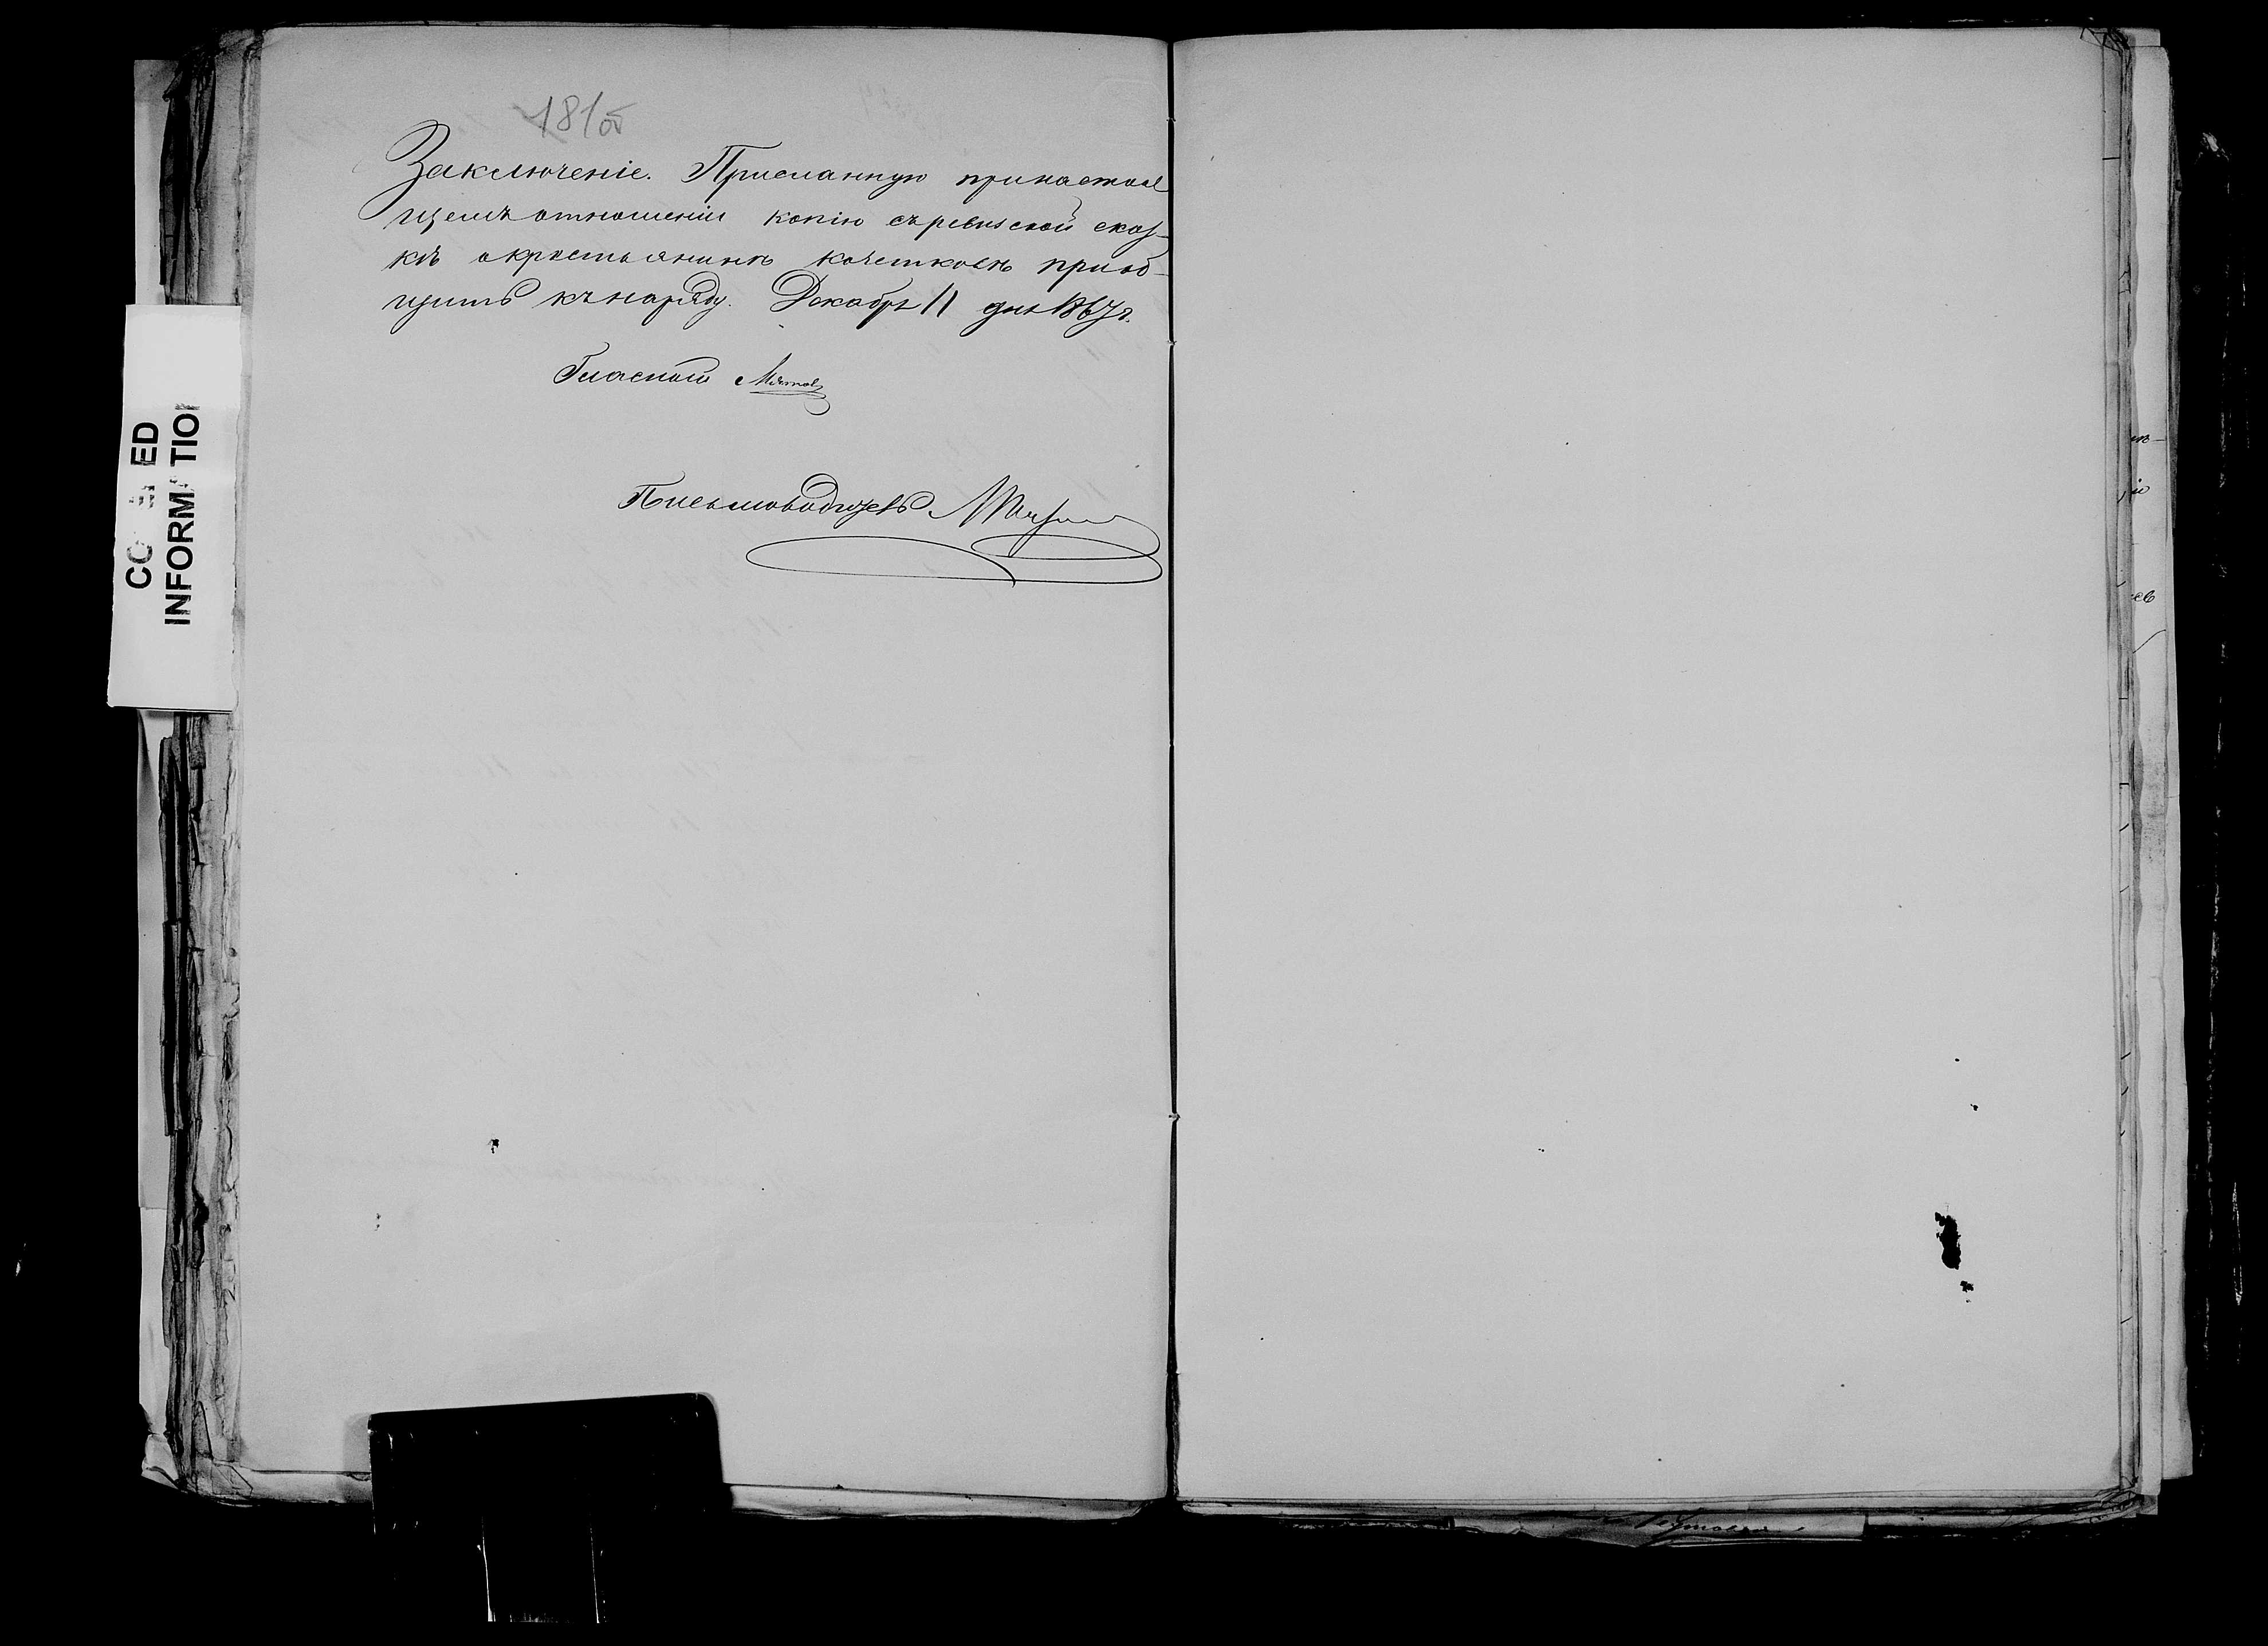 181об
Заключеніе. Присланную принастоя
щемъ отношеніи копію съревизской сказ-
ки окрестьянинѣ Кочетковѣ приоб-
щить кънаряду. Декабря 11 дня 1867 г.
Гласной
Письмоводитель
ED
INFORMATION